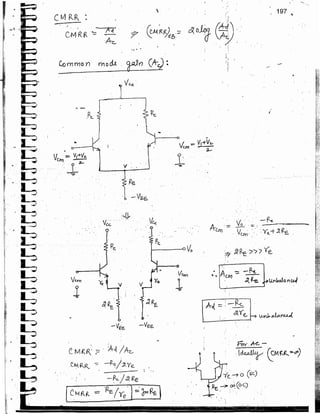 197
CMRR :
CMRR = Ad / Ac ⇒ (CMRR)dB = 20 log (Ad / Ac)
Common mode gain (Ac) :
Vcc
Rc Rc
Vcm = V1+V2 / 2
Vcm = V1+V2 / 2
V
RE
-VEE
Vcc Vcc
Rc Rc
Vo
Acm = Vo / Vcm = -Rc / re + 2RE
Vcm re V V re Vcm
2RE 2RE
-VEE -VEE
⇒ 2RE >>> re
∴ Acm = -Rc / 2RE → unbalanced
Ad = -Rc / 2re → unbalanced
CMRR = Ad / Ac
CMRR = -Rc / 2re
-Rc / 2RE
CMRR = RE / re = gm RE
For Ac -
Ideally (CMRR = ∞)
re → 0 (SC)
RE → ∞ (OC)